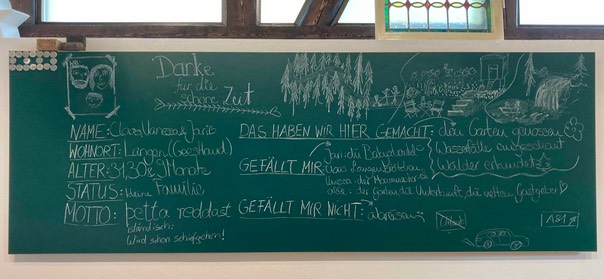 Danke
für die
schöne Zeit
NAME: Claas Vanessa Jaris
WOHNORT: Langen (Geestland)
ALTER: 31 30 8 Monate
STATUS: kleine Familie
MOTTO: þetta reddast
isländisch:
Wird schon schiefgehen!
DAS HABEN WIR HIER GEMACHT: den Garten genossen
Wasserfälle angeschaut
Wälder erkundet
GEFÄLLT MIR:
alle: der Garten, die Unterkunft, die netten Gastgeber
GEFÄLLT MIR NICHT: abreisen